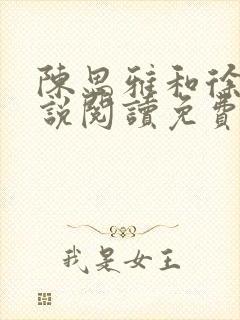 陳思雅和徐
說閱讀免費
我是女王